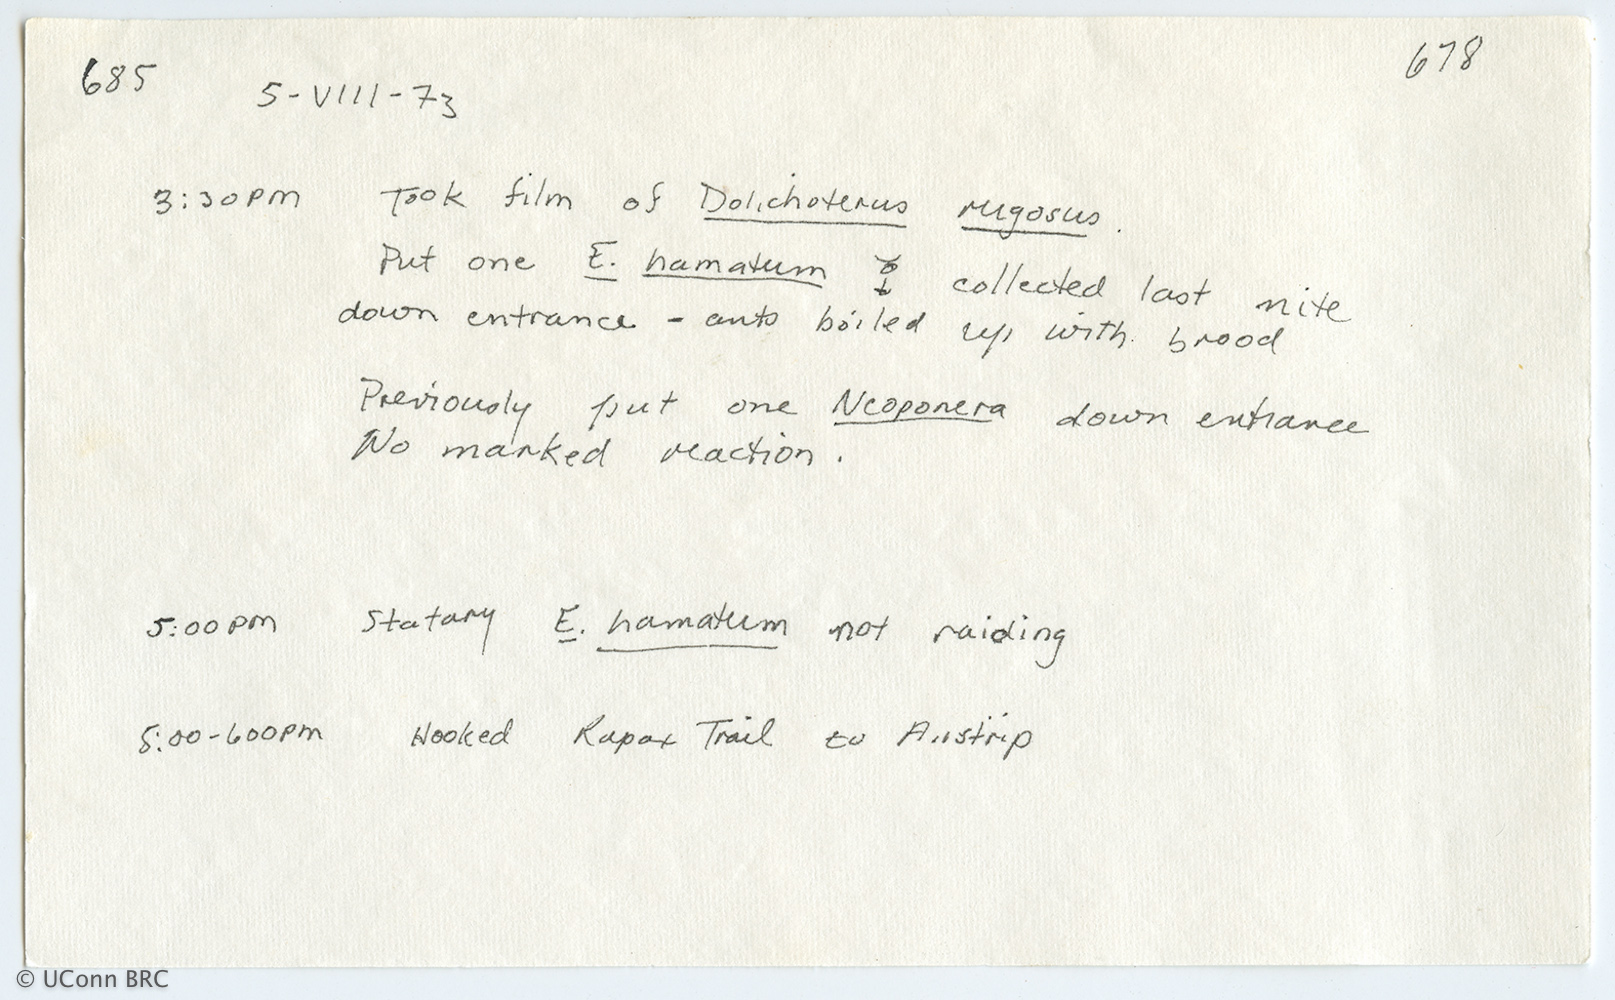 685
678
5-VIII-73
3:30pm Took film of Dolichoterus rugosus.
Put one E. hamatum ☿ collected last nite
down entrance - ants boiled up with brood
Previously put one Neoponera down entrance
No marked reaction.
5:00pm Statary E. hamatum not raiding
5:00-600pm Hooked Rapax Trail to Airstrip
© UConn BRC